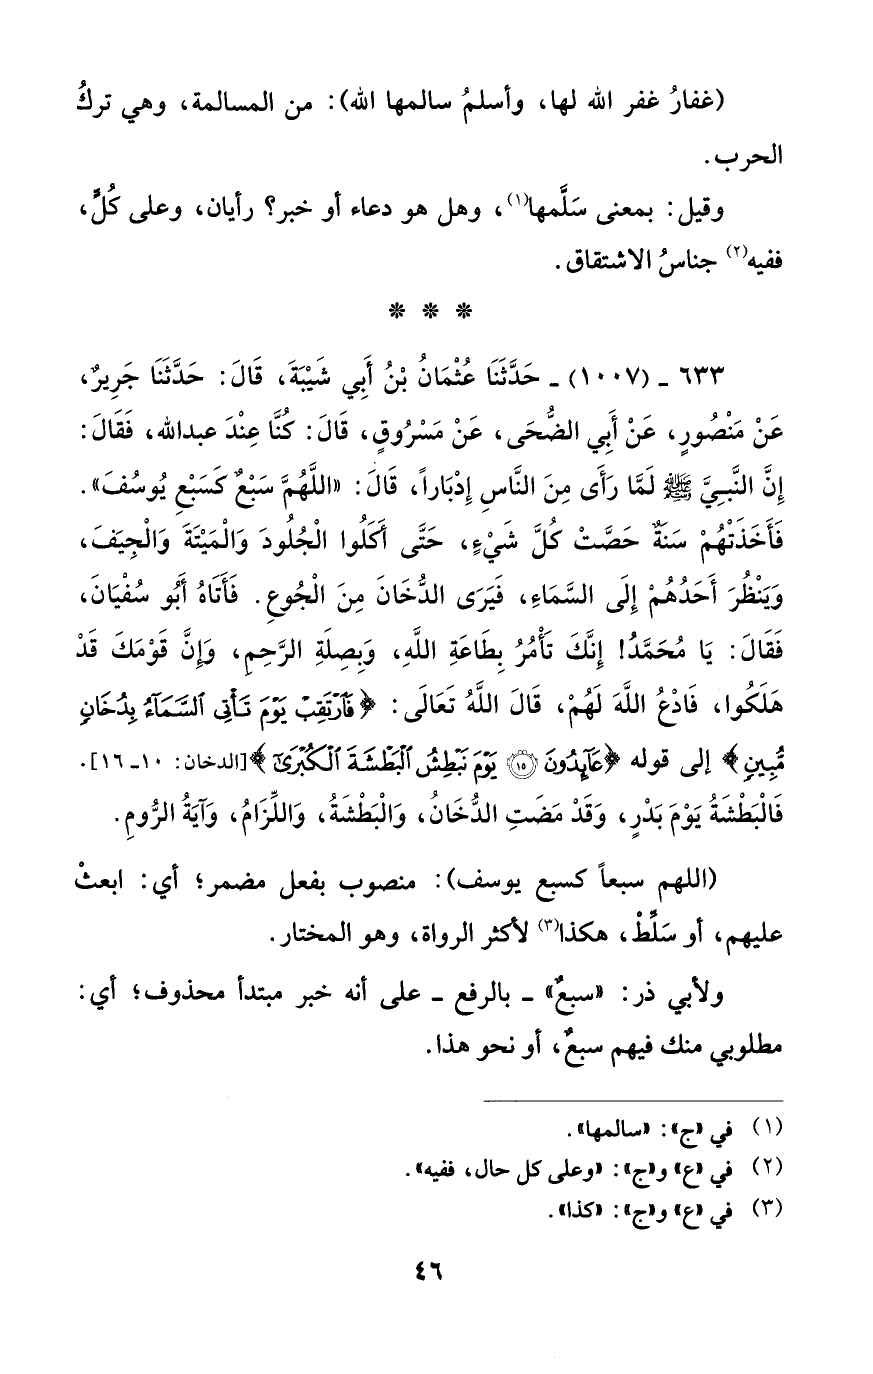 (غفارُ غفر الله لها، وأسلمُ سالمها الله): من المسالمة، وهي تركُ
الحرب.
وقيل: بمعنى سَلَّمها(١)، وهل هو دعاء أو خبر؟ رأيان، وعلى كُلٍّ،
ففيه(٢) جناسُ الاشتقاق.
* * *
٦٣٣ ـ (١٠٠٧) ـ حَدَّثَنَا عُثْمَانُ بْنُ أَبِي شَيْبَةَ، قَالَ: حَدَّثَنَا جَرِيرٌ،
عَنْ مَنْصُورٍ، عَنْ أَبِي الضُّحَى، عَنْ مَسْرُوقٍ، قَالَ: كُنَّا عِنْدَ عبدالله، فَقَالَ:
إِنَّ النَّبِيَّ ﷺ لَمَّا رَأَى مِنَ النَّاسِ إِدْبَاراً، قَالَ: «اللَّهُمَّ سَبْعٌ كَسَبْعِ يُوسُفَ».
فَأَخَذَتْهُمْ سَنَةٌ حَصَّتْ كُلَّ شَيْءٍ، حَتَّى أَكَلُوا الْجُلُودَ وَالْمَيْتَةَ وَالْجِيَفَ،
وَيَنْظُرَ أَحَدُهُمْ إِلَى السَّمَاءِ، فَيَرَى الدُّخَانَ مِنَ الْجُوعِ. فَأَتَاهُ أَبُو سُفْيَانَ،
فَقَالَ: يَا مُحَمَّدُ! إِنَّكَ تَأْمُرُ بِطَاعَةِ اللَّهِ، وَبِصِلَةِ الرَّحِمِ، وَإِنَّ قَوْمَكَ قَدْ
هَلَكُوا، فَادْعُ اللَّهَ لَهُمْ، قَالَ اللَّهُ تَعَالَى: ﴿فَٱرْتَقِبْ يَوْمَ تَأْتِى ٱلسَّمَآءُ بِدُخَانٍ
مُّبِينٍ﴾ إلى قوله ﴿عَآئِدُونَ ١٥ يَوْمَ نَبْطِشُ ٱلْبَطْشَةَ ٱلْكُبْرَىٰٓ﴾ [الدخان: ١٠ـ ١٦].
فَالْبَطْشَةُ يَوْمَ بَدْرٍ، وَقَدْ مَضَتِ الدُّخَانُ، وَالْبَطْشَةُ، وَاللِّزَامُ، وَآيَةُ الرُّومِ.
(اللهم سبعاً كسبع يوسف): منصوب بفعل مضمر؛ أي: ابعثْ
عليهم، أو سَلِّطْ، هكذا(٣) لأكثر الرواة، وهو المختار.
ولأبي ذر: «سبعٌ» ـ بالرفع ـ على أنه خبر مبتدأ محذوف؛ أي:
مطلوبي منك فيهم سبعٌ، أو نحو هذا.
(١) في «ج»: «سالمها».
(٢) في «ع» و«ج»: «وعلى كل حال، ففيه».
(٣) في «ع» و«ج»: «كذا».
٤٦